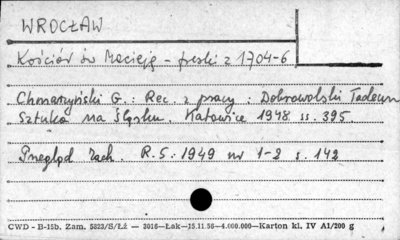 WROCŁAW
Kościół św Macieja - freski z 1704-6
Chmarzyński G.: Rec. z pracy: Dobrowolski Tadeusz
Sztuka na Śląsku. Katowice 1948 ss. 395.
Przegląd Zach. R.5: 1949 nr 1-2 s. 142
CWD - B-15b. Zam. 5823/S/Łź — 3016—Łak—15.11.56—4.000.000—Karton kl. IV A1/200 g